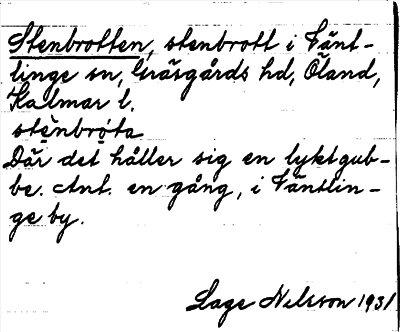 Stenbrotten, stenbrott i Vänt-
linge sn, Gräsgårds hd, Öland,
Kalmar l.
stenbrota
Där det håller sig en lyktgub-
be. Ant. en gång, i Väntlin-
ge by.
Lage Nilsson 1931